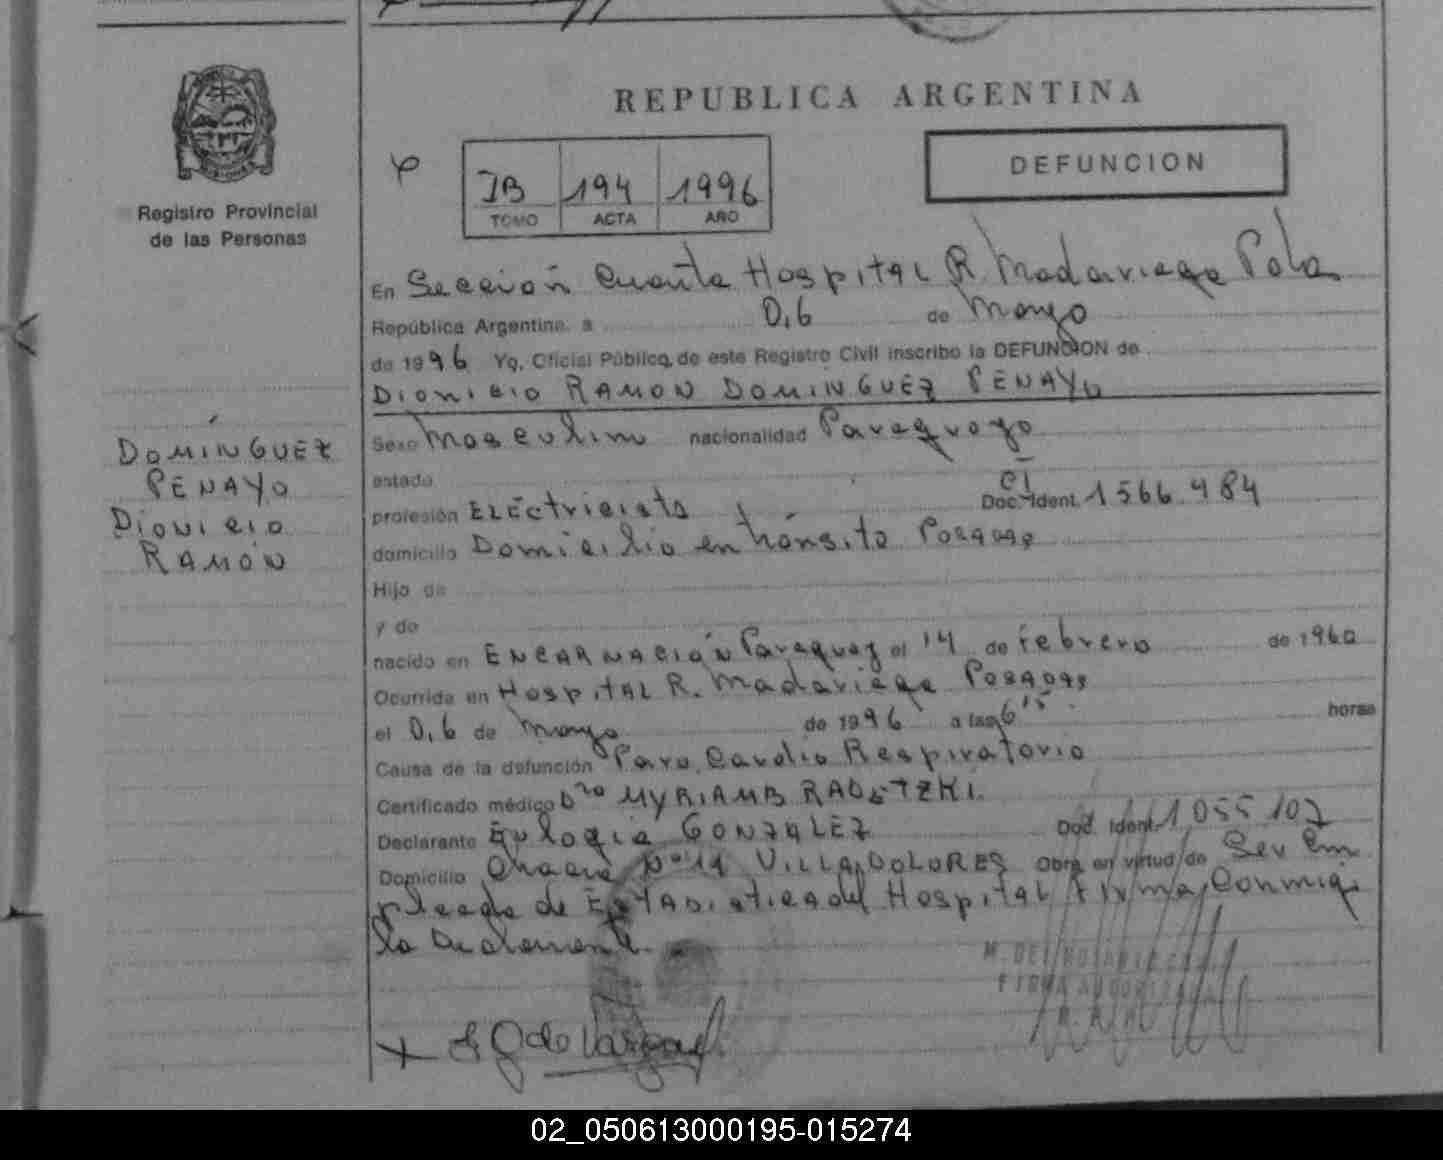 REPUBLICA ARGENTINA
DEFUNCION
IB 194 1996
TOMO ACTA AÑO
Registro Provincial
de las Personas
En Sección Cuarta Hospital R. Madariaga Pdas
República Argentina a 0,6 de Mayo
de 1996 Yo, Oficial Público, de este Registro Civil inscribo la DEFUNCION de
DIONICIO RAMON DOMINGUEZ PENAYO
Sexo Masculino nacionalidad Paraguayo
DOMÍNGUEZ
PENAYO
DIONICIO
RAMÓN
estado
profesión Electricista CI Doc. Ident. 1566.484
domicilio Domicilio en tránsito Posadas
Hijo de
y de
nacido en ENCARNACIÓN Paraguay el 14 de Febrero de 1960
Ocurrida en Hospital R. Madariaga Posadas
el 0,6 de Mayo de 1996 a las 6 15 horas
Causa de la defunción Paro Cardio Respiratorio
Certificado médico Dra MYRIAM B.
Declarante Eulogia GONZALEZ Doc. Ident. 1055.107
Domicilio Nº 11 VILLA DOLORES Obra en virtud de Ser Em
pleada de Estadistica del Hospital Firma Conmigo
la Declarante.
M. DEL
FIRMA AUTORIZADA
G de Vargas
02_050613000195-015274